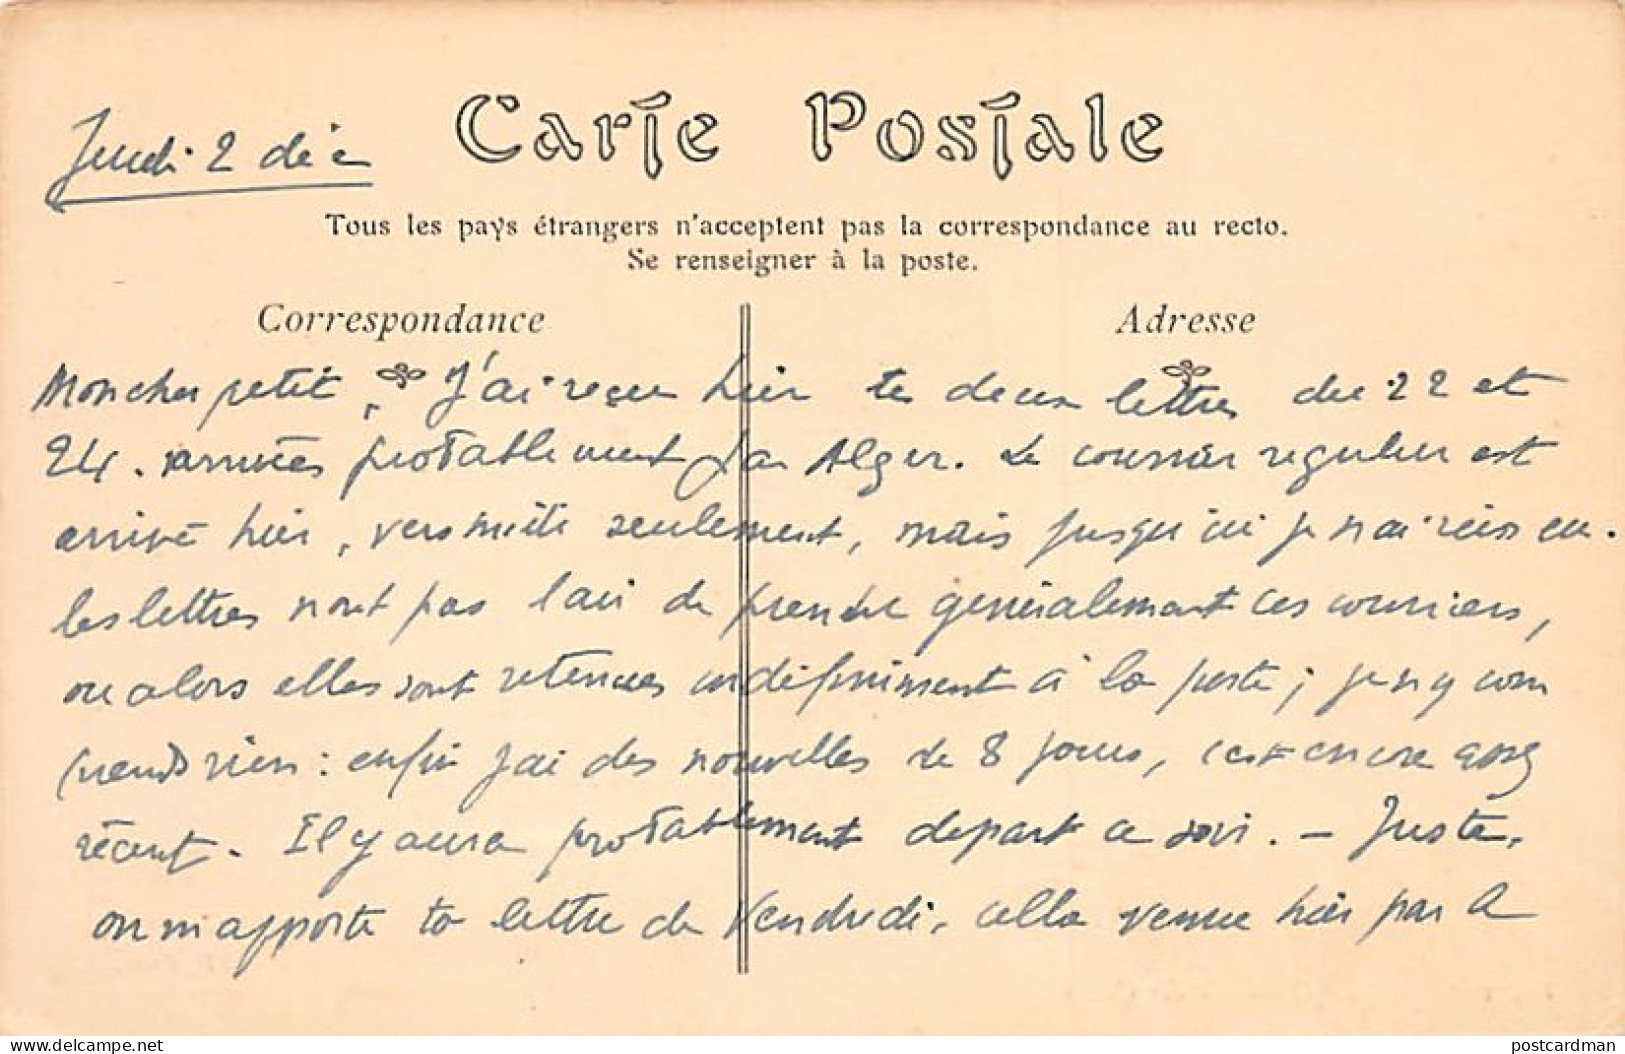 Carte Postale
Jeudi 2 déc
Tous les pays étrangers n'acceptent pas la correspondance au recto.
Se renseigner à la poste.
Correspondance
Adresse
Mon cher petit, J'ai reçu hier tes deux lettres du 22 et
24. arrivées probablement par Alger. Le courrier regulier est
arrivé hier, vers midi seulement, mais jusqu'ici je n'ai rien eu.
les lettres n'ont pas l'air de prendre généralement ces courriers,
ou alors elles sont retenues indéfiniment à la poste; je n'y com
prends rien: enfin j'ai des nouvelles de 8 jours, c'est encore assez
récent. Il y aura probablement depart ce soir. - Juste,
on m'apporte ta lettre de Vendredi, celle venue hier par le
delcampe.net
postcardman